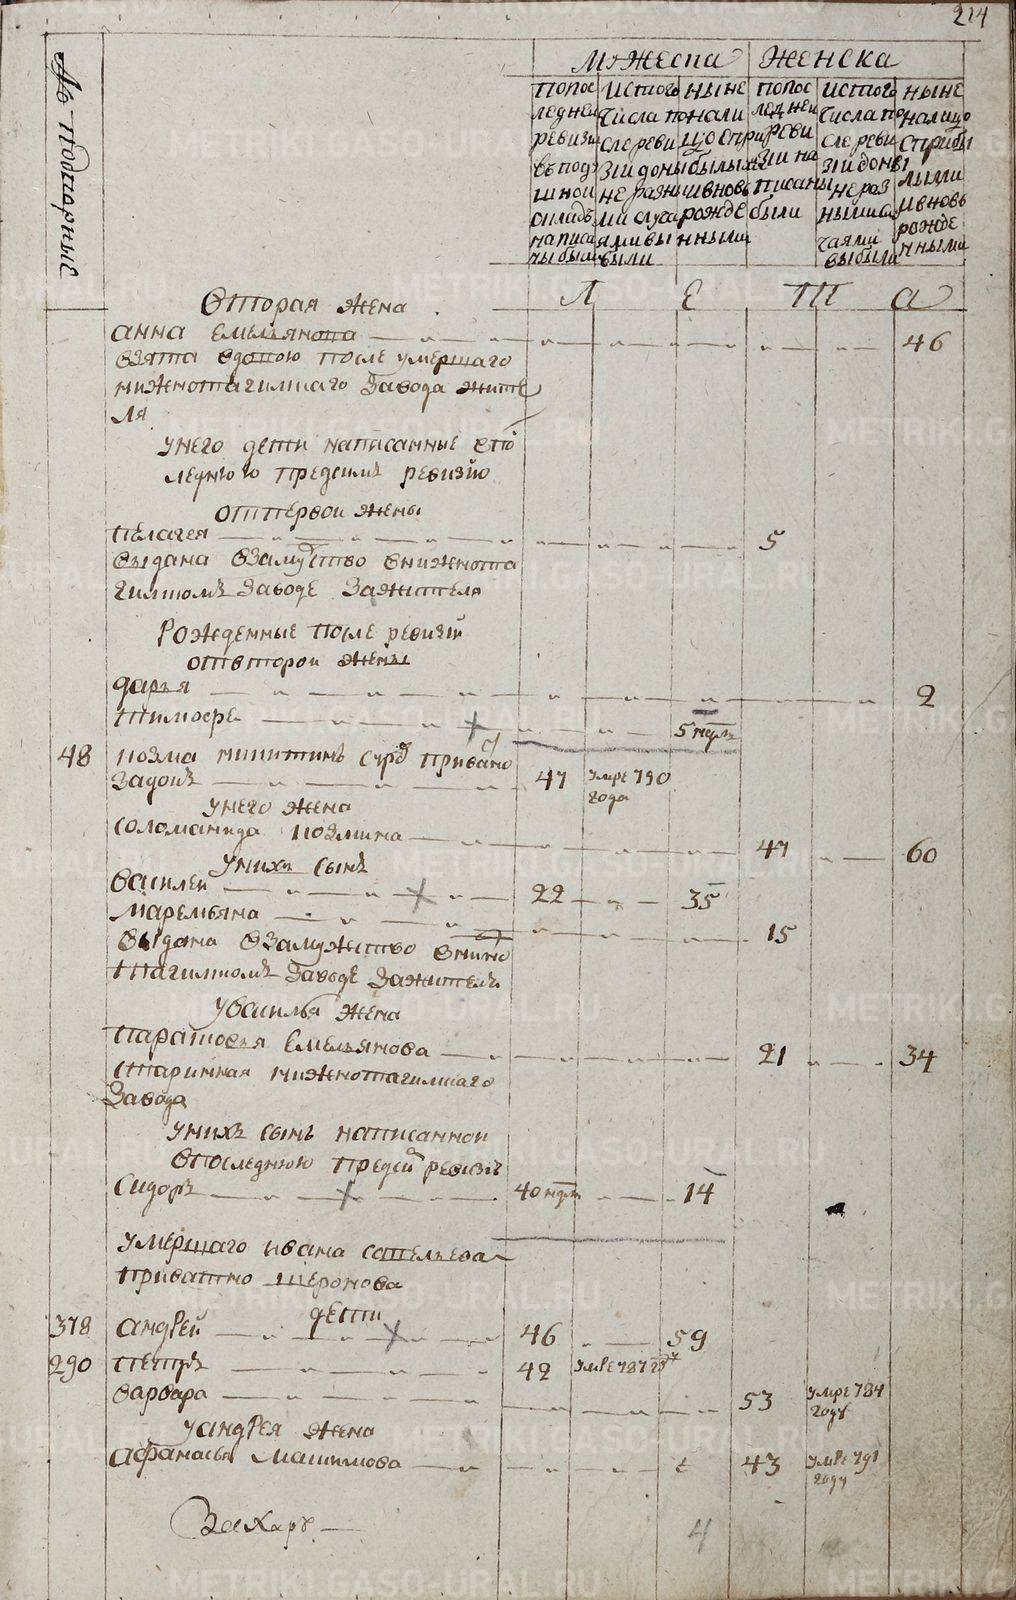 214
№ подпарные
Мужеска Женска
попос
ледней
ревизи
въ под
шной
окладъ
написа
ны были
истого
числа по
сле реви
зии до ны
не разны
ми случа
ями вы
были
ныне
нали
цо спри
былыхъ
и вновь
рожде
нныхъ
попос
ледней
реви
зии на
писаны
были
истого
числа по
сле реви
зии до ны
не раз
ными слу
чаями
выбыли
ныне
налицо
с прибы
лыми
и вновь
рожде
нными
Л Е Т А
Вторая жена
анна емельянова 46
взята вдовою после умершаго
нижнотагилскаго завода жите
ля
унего дети написанные впо
леднюю предсимъ ревизию
отпервой жены
Пелагея 5
выдана взамуство внижнота
гилскомъ заводе зажителя
Рожденные после ревизии
отвторой жены
дарья 2
тимофеи 5 неде
48 козма никитинъ сурд привано
задокъ 47 умре 790
года
унего жена
соломанида козмина 47 60
унихъ сынъ
василеи 22 35
маремьяна 15
выдана взамужество внижно
тагилскомъ заводе зажителя
увасилья жена
парасковья Емельянова 21 34
старинная нижнотагилскаго
завода
унихъ сынъ написанной
впоследнюю предсию ревизию
Сидоръ 40 неде 14
умершаго ивана савельева
приватно широнова
дети
378 андрей 46 59
290 петръ 42 умре 787 го
варвара 53 умре 784
году
уандрея жена
афанасья Максимова 43 умре 791
году
Захаръ 4
METRIKI.GASO-URAL.RU